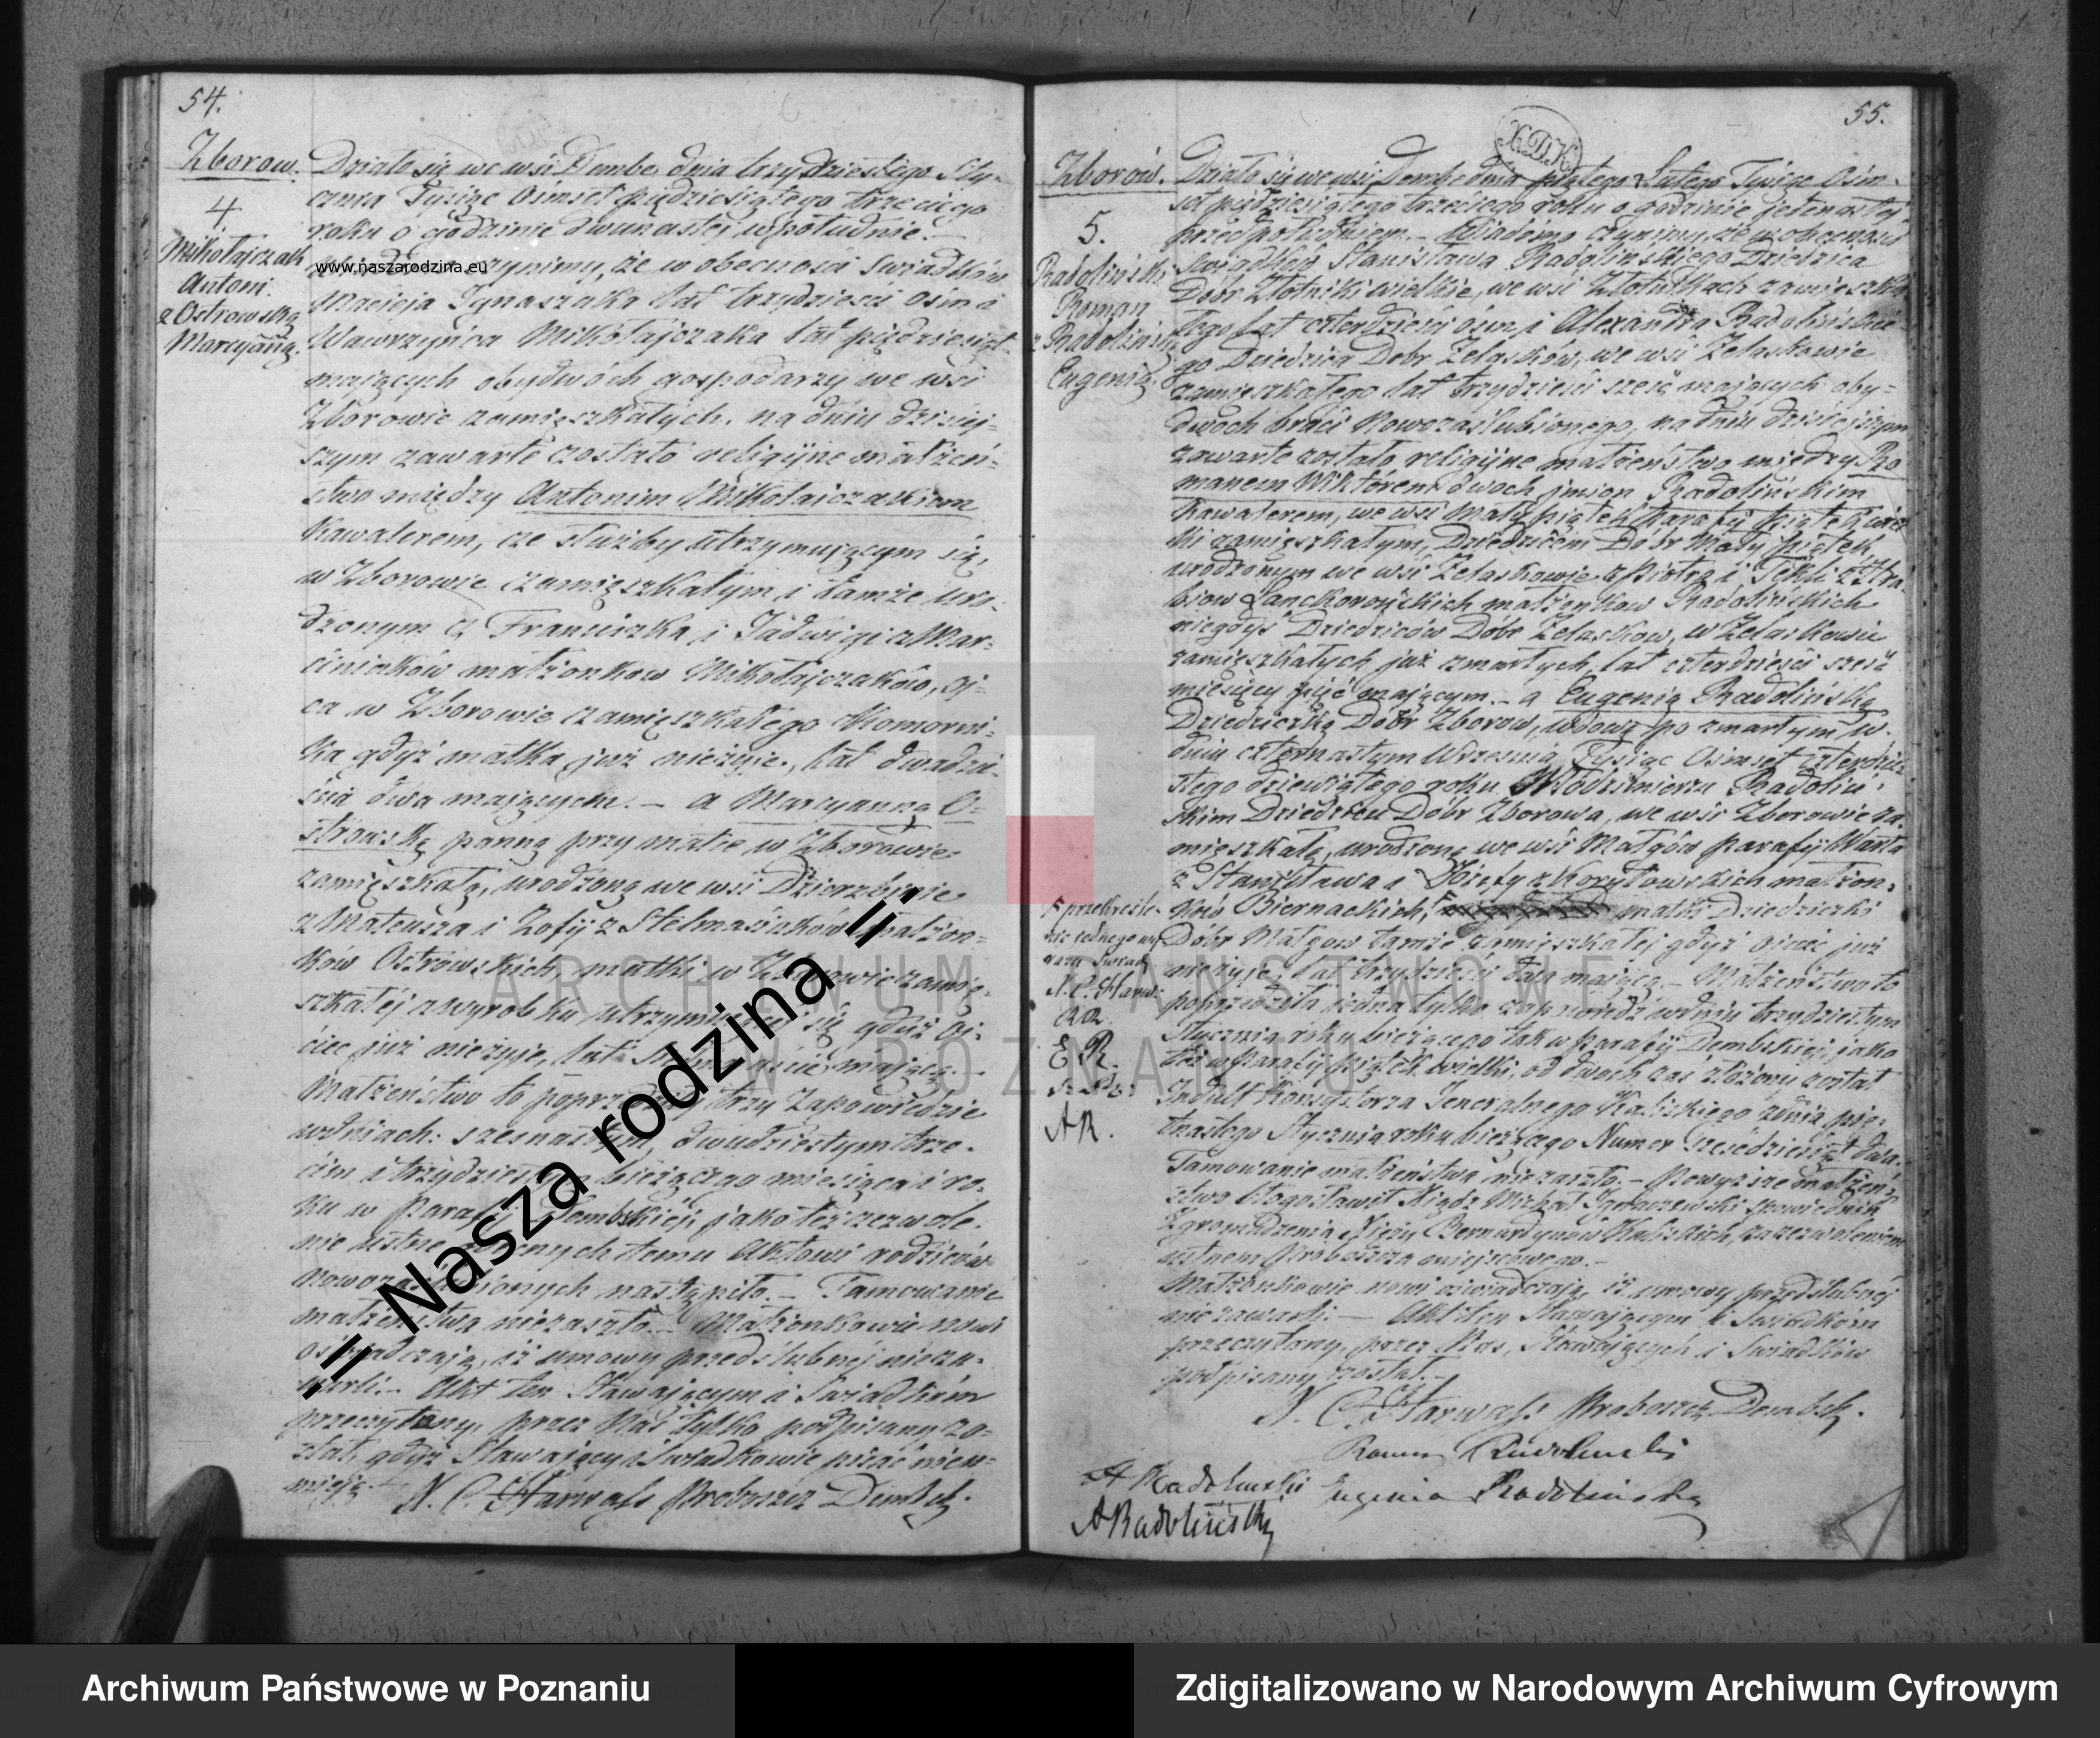 54.
Zborow.
4
Mikołajczak
Antoni
z Ostrowską
Marcyanną.
Działo się we wsi Dembe dnia trzydziestego Sty-
cznia Tysiąc Ośmset pięćdziesiątego trzeciego
roku o godzinie dwunastej w południe. –
czynimy, że w obecności Swiadków
Macieja Ignaszaka lat trzydzieści ośm i
Wawrzyńca Mikołajczaka lat pięćdziesiąt
mających obydwóch gospodarzy we wsi
Zborowie zamięszkałych, na dniu dzisiej-
szym zawarte zostało religijne małżeń-
stwo między Antonim Mikołajczakiem
Kawalerem, ze służby utrzymującym się,
w Zborowie zamięszkałym i tamże uro-
dzonym z Franciszka i Jadwigi z Mar-
ciniaków małżonków Mikołajczaków, oj-
ca w Zborowie zamięszkałego Komorni-
ka gdyż matka już nieżyje, lat dwadzie-
ścia dwa mającym. – a Marcyanną O-
strowską panną przy matce w Zborowie
zamięszkałą, urodzoną we wsi Dzierzbinie
z Mateusza i Zofij z Stelmasiaków małżon-
ków Ostrowskich, matki w Zborowie zamię-
szkałej z wyrobku utrzymującej się gdyż oj-
ciec już nieżyje, lat mającą. –
Małżeństwo to trzy Zapowiedzie
w dniach: szesnastym, dwudziestym trze-
cim i trzydziestym bieżącego miesiąca i ro-
ku w Parafij Dembskiej, jako też zezwole-
nie ustne obecnych temu Aktowi rodziców
Nowozaślubionych nastąpiło. – Tamowanie
małżeństwa niezaszło. – Małżonkowie nowi
oświadczają, iż umowy przedślubnej nieza-
warli. – Akt ten Stawającym i Swiadkom
przeczytany, przez Nas tylko podpisany zo-
stał, gdyż Stawający i Swiadkowie pisać nieu-
mieją. –
N. C. Harwass Proboszcz Dembsk.
55.
X.D.K.
Zborów.
5.
Radoliński
Roman
z Radolińską
Eugenią.
Działo się we wsi Dembe dnia piątego Lutego Tysiąc Ośm-
set pięćdziesiątego trzeciego roku o godzinie jedenastej
przed południem. – Wiadomo czynimy, że w obecności
Swiadków Stanisława Radolińskiego Dziedzica
Dóbr Złotniki wielkie, we wsi Złotnikach zamięszka-
łego lat czterdzieści ośm i Alexandra Radolińskie-
go Dziedzica Dobr Żelasków, we wsi Żelaskowie
zamięszkałego lat trzydzieści sześć mających oby-
dwóch braci Nowozaślubionego, na dniu dzisiejszym
zawarte zostało religijne małżeństwo między Ro-
manem Wiktorem dwoch imion Radolińskim
Kawalerem, we wsi Mały piątek Parafij
zamięszkałym, Dziedzicem Dobr Mały piątek,
urodzonym we wsi Żelaskowie z Piotra i Tekli z Hra-
biow Lanckorońskich małżonkow Radolińskich
niegdyś Dziedziców Dóbr Żelaskow, w Żelaskowie
zamięszkałych już zmarłych, lat czterdzieści sześć
miesięcy pięć mającym. – a Eugenią Radolińską
Dziedziczką Dóbr Zborow, wdową po zmarłym w
dniu czternastym Września Tysiąc Ośmset czterdzie-
stego dziewiątego roku Włodzimierzu Radoliń-
skim Dziedzicu Dóbr Zborowa, we wsi Zborowie za-
mieszkałą, urodzoną we wsi Małgów parafij Warta
z Stanisława i Józefy z Korytowskich małżon-
ków Biernackich, matki Dziedziczki
Dóbr Małgow tamże zamięszkałej gdyż ojciec już
nieżyje, lat trzydzieści dwa mającą. – Małżeństwo to
poprzedziła jedna tylko zapowiedź w dniu trzydziestym
Stycznia roku bieżącego tak w Parafij Dembskiej, jako
też w Parafij piątek wielki, od dwoch zaś złożony został
Indult Konsystorza Jeneralnego Kaliskiego z dnia pię-
tnastego Stycznia roku bieżącego Numer sześćdziesiąt dwa.
Tamowanie małżeństwa niezaszło. – Powyższe małżeń-
stwo błogosławił Xiądz Michał Spowiednik
Zgromadzenia Xięży Bernardynów Kaliskich, za zezwoleniem
ustnem Proboszcza miejscowego. –
Małżonkowie nowi oświadczają, iż umowy przedślubnej
niezawarli. – Akt ten Stawającym i Swiadkom
przeczytany, przez Nas, Stawających i Swiadków
podpisany został. –
przekreśle-
nie jednego wy-
razu
N. C. Harw.
E. R.
A R.
N. C. Harwass Proboszcz Dembsk.
Roman Radoliński
A Radoliński Eugenia Radolińska
A Radoliński
www.naszarodzina.eu
-= Nasza rodzina =-
ARCHIWUM PAŃSTWOWE
W POZNANIU
Archiwum Państwowe w Poznaniu
Zdigitalizowano w Narodowym Archiwum Cyfrowym